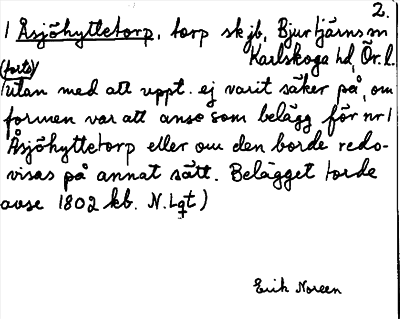 2.
1 Åsjöhyttetorp, torp skjb, Bjurtjärns sn
Karlskoga hd, Ör. l.
(forts)
utan med att uppt. ej varit säker på, om
formen var att anse som belägg för nr 1
Åsjöhyttetorp eller om den borde redo-
visas på annat sätt. Belägget torde
avse 1802 kb. N. Lgt)
Erik Noreen